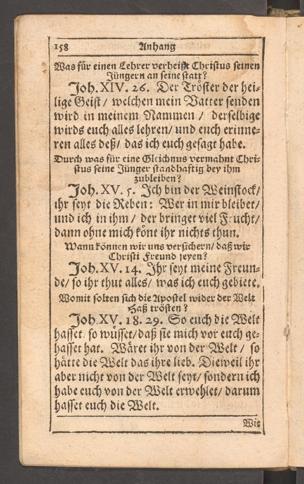 158 Anhang
Was für einen Lehrer verheisst Christus seinen
Jüngern an seine statt?
Joh. XIV. 26. Der Tröster der hei-
lige Geist/ welchen mein Vatter senden
wird in meinem Nammen / derselbige
wirds euch alles lehren/ und euch erinne-
ren alles deß/ das ich euch gesagt habe.
Durch was für eine Glichnus vermahnt Chri-
stus seine Jünger standhaftig bey ihm
zubleiben?
Joh. XV. 5. Ich bin der Weinstock/
ihr seyt die Reben: Wer in mir bleibet/
und ich in ihm / der bringet viel Frucht/
dann ohne mich köne ihr nichts thun.
Wann können wir uns versichern/ daß wir
Christi Freund seyen?
Joh. XV. 14. Ihr seyt meine Freun-
de/ so ihr thut alles/ was ich euch gebiete.
Womit solten sich die Apostel wider der Welt
Haß trösten?
Joh. XV. 18. 29. So euch die Welt
hasset/ so wüsset/ daß sie mich vor euch ge-
hasset hat. Wäret ihr von der Welt / so
hätte die Welt das ihre lieb. Dieweil ihr
aber nicht von der Welt seyt/ sondern ich
habe euch von der Welt erwehlet/ darum
hasset euch die Welt.
Wie